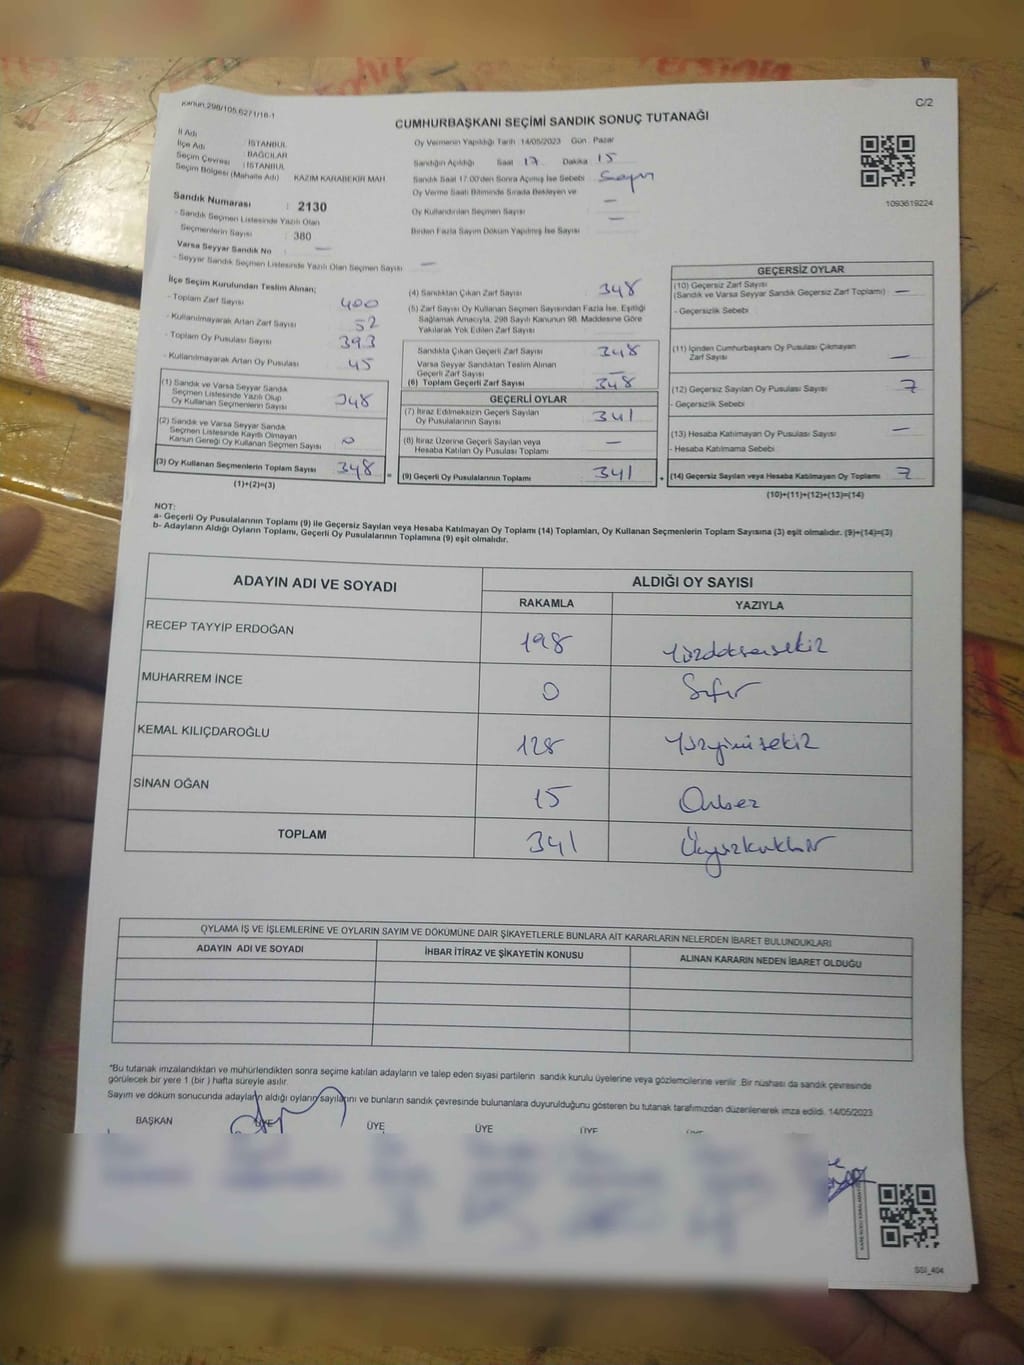 Kanun.298/105,6271/16-1
C/2
CUMHURBAŞKANI SEÇİMİ SANDIK SONUÇ TUTANAĞI
İl Adı : İSTANBUL
İlçe Adı : BAĞCILAR
Seçim Çevresi : İSTANBUL
Seçim Bölgesi (Mahalle Adı) KAZIM KARABEKİR MAH.
Oy Vermenin Yapıldığı Tarih 14/05/2023 Gün Pazar
Sandığın Açıldığı Saat 17 Dakika 15
Sandık Saat 17:00'den Sonra Açılmış İse Sebebi Sayım
Oy Verme Saati Bitiminde Sırada Bekleyen ve —
Oy Kullandırılan Seçmen Sayısı —
Birden Fazla Sayım Döküm Yapılmış İse Sayısı
1093619224
Sandık Numarası : 2130
- Sandık Seçmen Listesinde Yazılı Olan
Seçmenlerin Sayısı : 380
Varsa Seyyar Sandık No : —
- Seyyar Sandık Seçmen Listesinde Yazılı Olan Seçmen Sayısı —
İlçe Seçim Kurulundan Teslim Alınan;
- Toplam Zarf Sayısı 400
- Kullanılmayarak Artan Zarf Sayısı 52
- Toplam Oy Pusulası Sayısı 393
- Kullanılmayarak Artan Oy Pusulası 45
(1) Sandık ve Varsa Seyyar Sandık
Seçmen Listesinde Yazılı Olup
Oy Kullanan Seçmenlerin Sayısı 348
(2) Sandık ve Varsa Seyyar Sandık
Seçmen Listesinde Kayıtlı Olmayan
Kanun Gereği Oy Kullanan Seçmen Sayısı 0
(3) Oy Kullanan Seçmenlerin Toplam Sayısı 348 =
(1)+(2)=(3)
(4) Sandıktan Çıkan Zarf Sayısı 348
(5) Zarf Sayısı Oy Kullanan Seçmen Sayısından Fazla İse, Eşitliği
Sağlamak Amacıyla, 298 Sayılı Kanunun 98. Maddesine Göre
Yakılarak Yok Edilen Zarf Sayısı
Sandıkta Çıkan Geçerli Zarf Sayısı 348
Varsa Seyyar Sandıktan Teslim Alınan
Geçerli Zarf Sayısı —
(6) Toplam Geçerli Zarf Sayısı 348
GEÇERLİ OYLAR
(7) İtiraz Edilmeksizin Geçerli Sayılan
Oy Pusulalarının Sayısı 341
(8) İtiraz Üzerine Geçerli Sayılan veya
Hesaba Katılan Oy Pusulası Toplamı —
(9) Geçerli Oy Pusulalarının Toplamı 341 +
GEÇERSİZ OYLAR
(10) Geçersiz Zarf Sayısı
(Sandık ve Varsa Seyyar Sandık Geçersiz Zarf Toplamı) —
- Geçersizlik Sebebi
(11) İçinden Cumhurbaşkanı Oy Pusulası Çıkmayan
Zarf Sayısı —
(12) Geçersiz Sayılan Oy Pusulası Sayısı 7
- Geçersizlik Sebebi
(13) Hesaba Katılmayan Oy Pusulası Sayısı —
- Hesaba Katılmama Sebebi
(14) Geçersiz Sayılan veya Hesaba Katılmayan Oy Toplamı 7
(10)+(11)+(12)+(13)=(14)
NOT:
a- Geçerli Oy Pusulalarının Toplamı (9) ile Geçersiz Sayılan veya Hesaba Katılmayan Oy Toplamı (14) Toplamları, Oy Kullanan Seçmenlerin Toplam Sayısına (3) eşit olmalıdır. (9)+(14)=(3)
b- Adayların Aldığı Oyların Toplamı, Geçerli Oy Pusulalarının Toplamına (9) eşit olmalıdır.
ADAYIN ADI VE SOYADI
ALDIĞI OY SAYISI
RAKAMLA YAZIYLA
RECEP TAYYİP ERDOĞAN 198 Yüzdoksansekiz
MUHARREM İNCE 0 Sıfır
KEMAL KILIÇDAROĞLU 128 Yüzyirmisekiz
SİNAN OĞAN 15 Onbeş
TOPLAM 341 Üçyüzkırkbir
OYLAMA İŞ VE İŞLEMLERİNE VE OYLARIN SAYIM VE DÖKÜMÜNE DAİR ŞİKAYETLERLE BUNLARA AİT KARARLARIN NELERDEN İBARET BULUNDUKLARI
ADAYIN ADI VE SOYADI İHBAR İTİRAZ VE ŞİKAYETİN KONUSU ALINAN KARARIN NEDEN İBARET OLDUĞU
*Bu tutanak imzalandıktan ve mühürlendikten sonra seçime katılan adayların ve talep eden siyasi partilerin sandık kurulu üyelerine veya gözlemcilerine verilir. Bir nüshası da sandık çevresinde
görülecek bir yere 1 (bir ) hafta süreyle asılır.
Sayım ve döküm sonucunda adayların aldığı oyların sayılarını ve bunların sandık çevresinde bulunanlara duyurulduğunu gösteren bu tutanak tarafımızdan düzenlenerek imza edildi. 14/05/2023
BAŞKAN ÜYE ÜYE ÜYE ÜYE
SSI_404